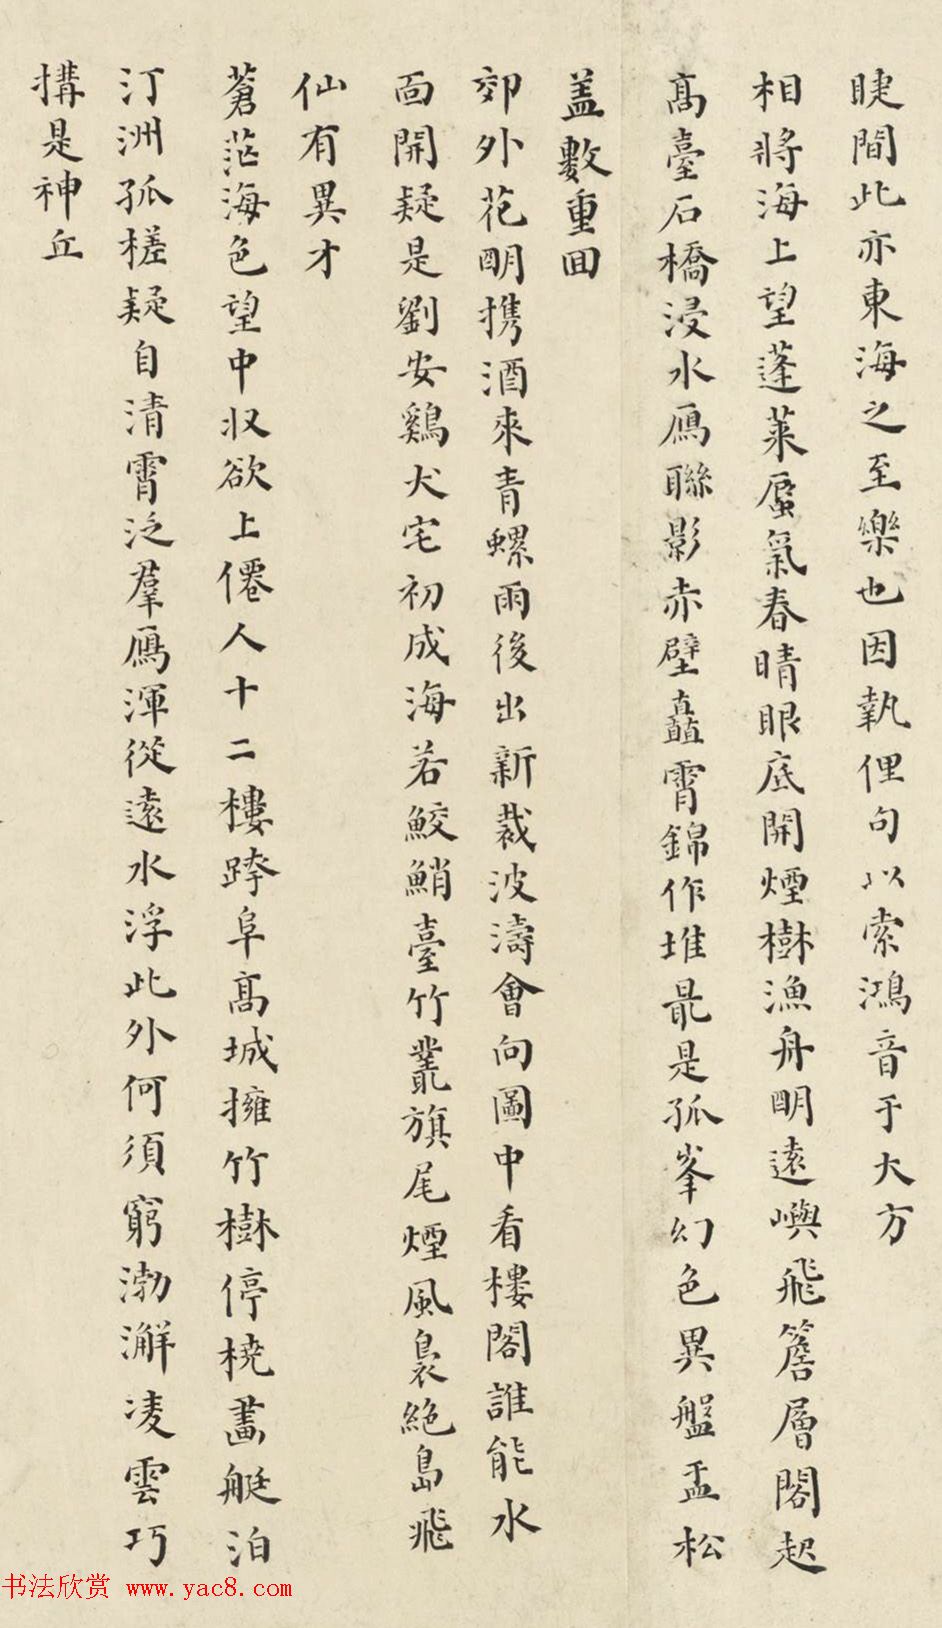 睫間此亦東海之至樂也因執俚句以索鴻音于大方
相將海上望蓬萊蜃氣春晴眼底開煙樹漁舟明遠嶼飛簷層閣起
高臺石橋浸水鴈聯影赤壁矗霄錦作堆最是孤峯幻色異盤盂松
盖數重回
郊外花明携酒來青螺雨後出新裁波濤會向圖中看樓閣誰能水
面開疑是劉安鷄犬宅初成海若鮫鮹臺竹叢旗尾煙風裊絕島飛
仙有異才
蒼茫海色望中収欲上僊人十二樓跨阜高城擁竹樹停橈畫艇泊
汀洲孤槎疑自清霄泛羣鴈渾從遠水浮此外何須窮渤澥凌雲巧
搆是神丘
书法欣赏 www.yac8.com